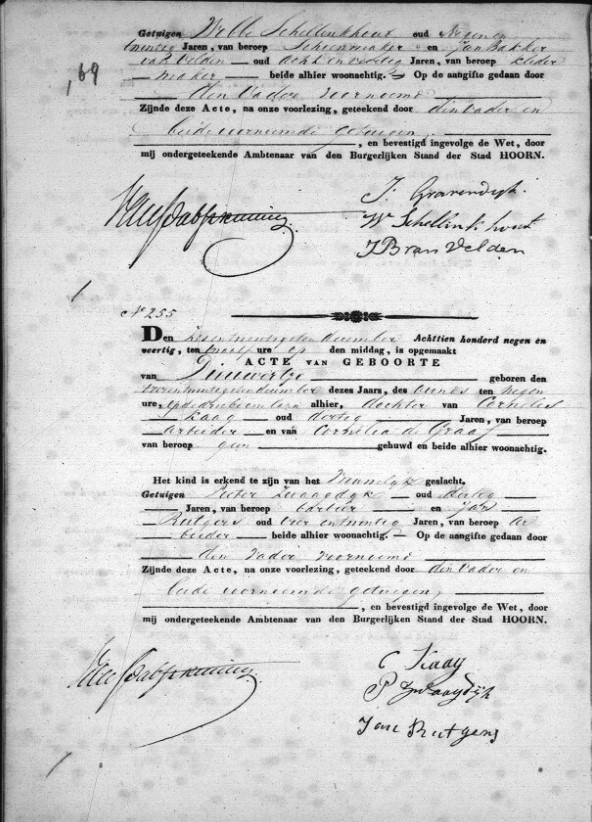 Getuigen Wibbe Schellinkhout oud negen en
twintig Jaren, van beroep Schoenmaker en Jan Bakker
van Velden oud acht en veertig Jaren, van beroep kleder
169
maker beide alhier woonachtig. Op de aangifte gedaan door
den Vader voornoemd
Zijnde deze Acte, na onze voorlezing, geteekend door den vader en
beide voornoemde getuigen
, en bevestigd ingevolge de Wet, door
mij ondergeteekende Ambtenaar van den Burgerlijken Stand der Stad HOORN.
J. Gravendijk.
W Schellinkhout
J B van Velden
No 255
Den zesentwintigsten december Achttien honderd negen en
veertig, ten twaalf ure op den middag, is opgemaakt
ACTE VAN GEBOORTE
van Dieuwertje geboren den
dezes Jaars, des avonds ten negen
ure, alhier, dochter van Cornelis
Kaag oud dertig Jaren, van beroep
arbeider en van Cornelia de Graaf
van beroep geen gehuwd en beide alhier woonachtig.
Het kind is erkend te zijn van het Vrouwelijk geslacht.
Getuigen Pieter Zwaagdyk oud dertig
Jaren, van beroep barbier en Jan
Rutgers oud vier en twintig Jaren, van beroep ar
beider beide alhier woonachtig. — Op de aangifte gedaan door
den Vader voornoemd
Zijnde deze Acte, na onze voorlezing, geteekend door den vader en
beide voornoemde getuigen,
, en bevestigd ingevolge de Wet, door
mij ondergeteekende Ambtenaar van den Burgerlijken Stand der Stad HOORN.
C Kaag
P Zwaagdijk
Jan Rutgers